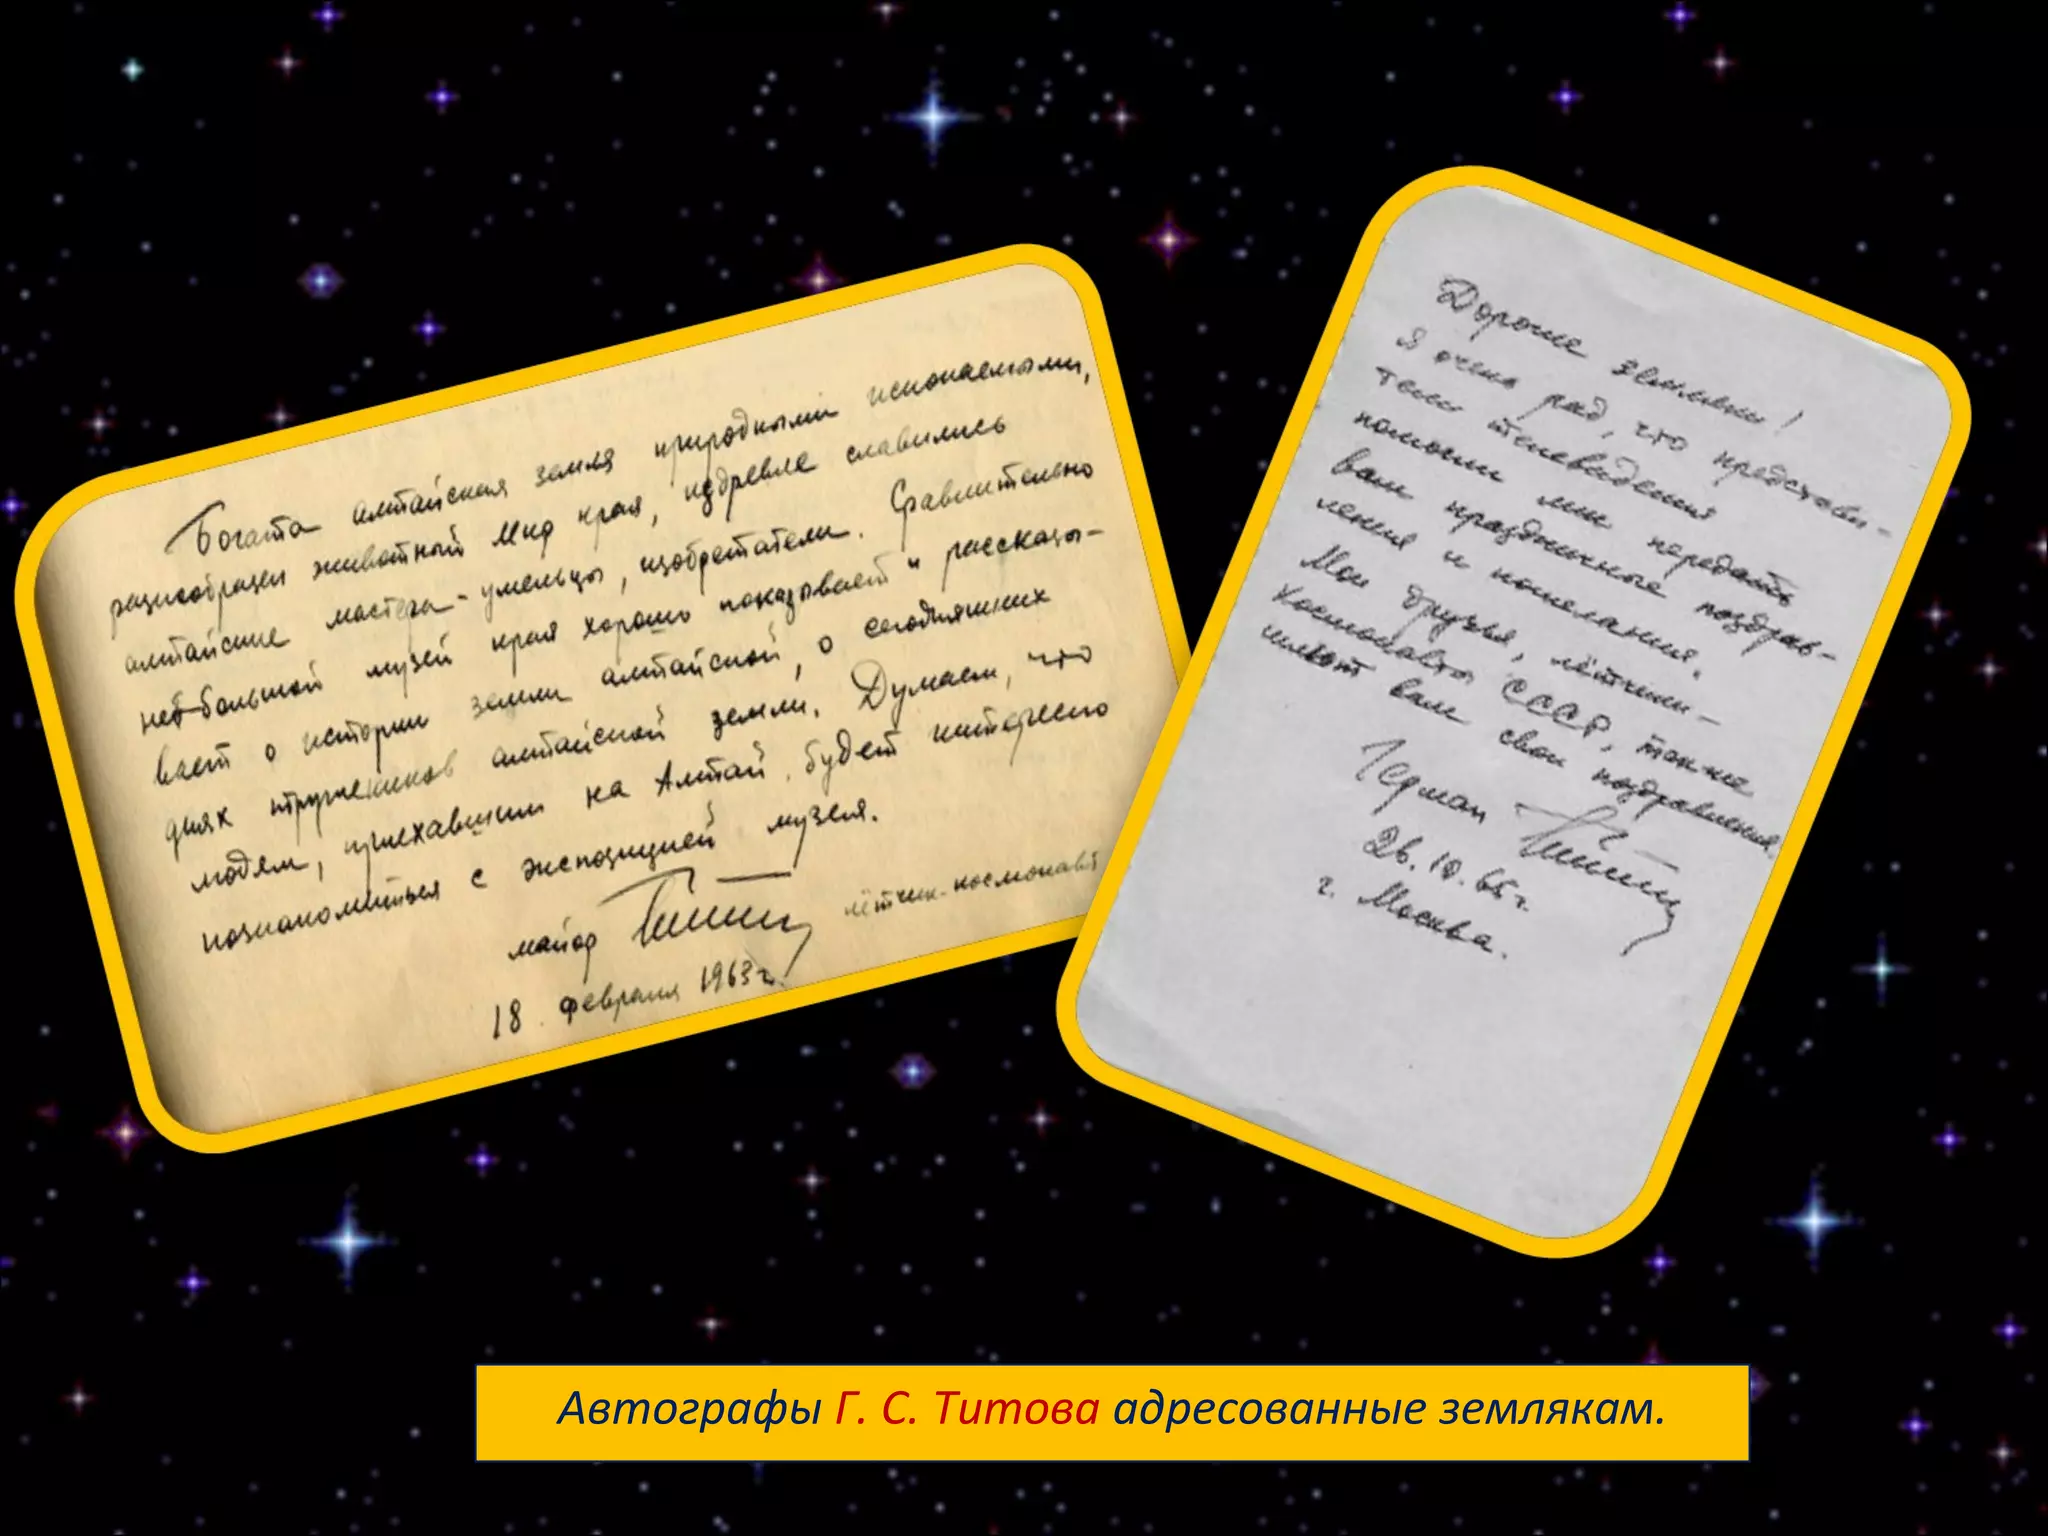 Богата алтайская земля природными ископаемыми,
разнообразен животный мир края, издревле славились
алтайские мастера-умельцы, изобретатели. Сравнительно
небольшой музей края хорошо показывает и рассказы-
вает о истории земли алтайской, о сегодняшних
днях тружеников алтайской земли. Думаем, что
людям, приехавшим на Алтай будет интересно
познакомиться с экспозицией музея.
майор Титов лётчик-космонавт
18 февраля 1963 г.
Дорогие земляки!
Я очень рад, что представи-
тели телевидения
помогли мне передать
вам праздничные поздрав-
ления и пожелания.
Мои друзья, лётчики-
космонавты СССР, также
шлют вам свои поздравления.
Герман Титов
26.10.65г.
г. Москва.
Автографы Г. С. Титова адресованные землякам.